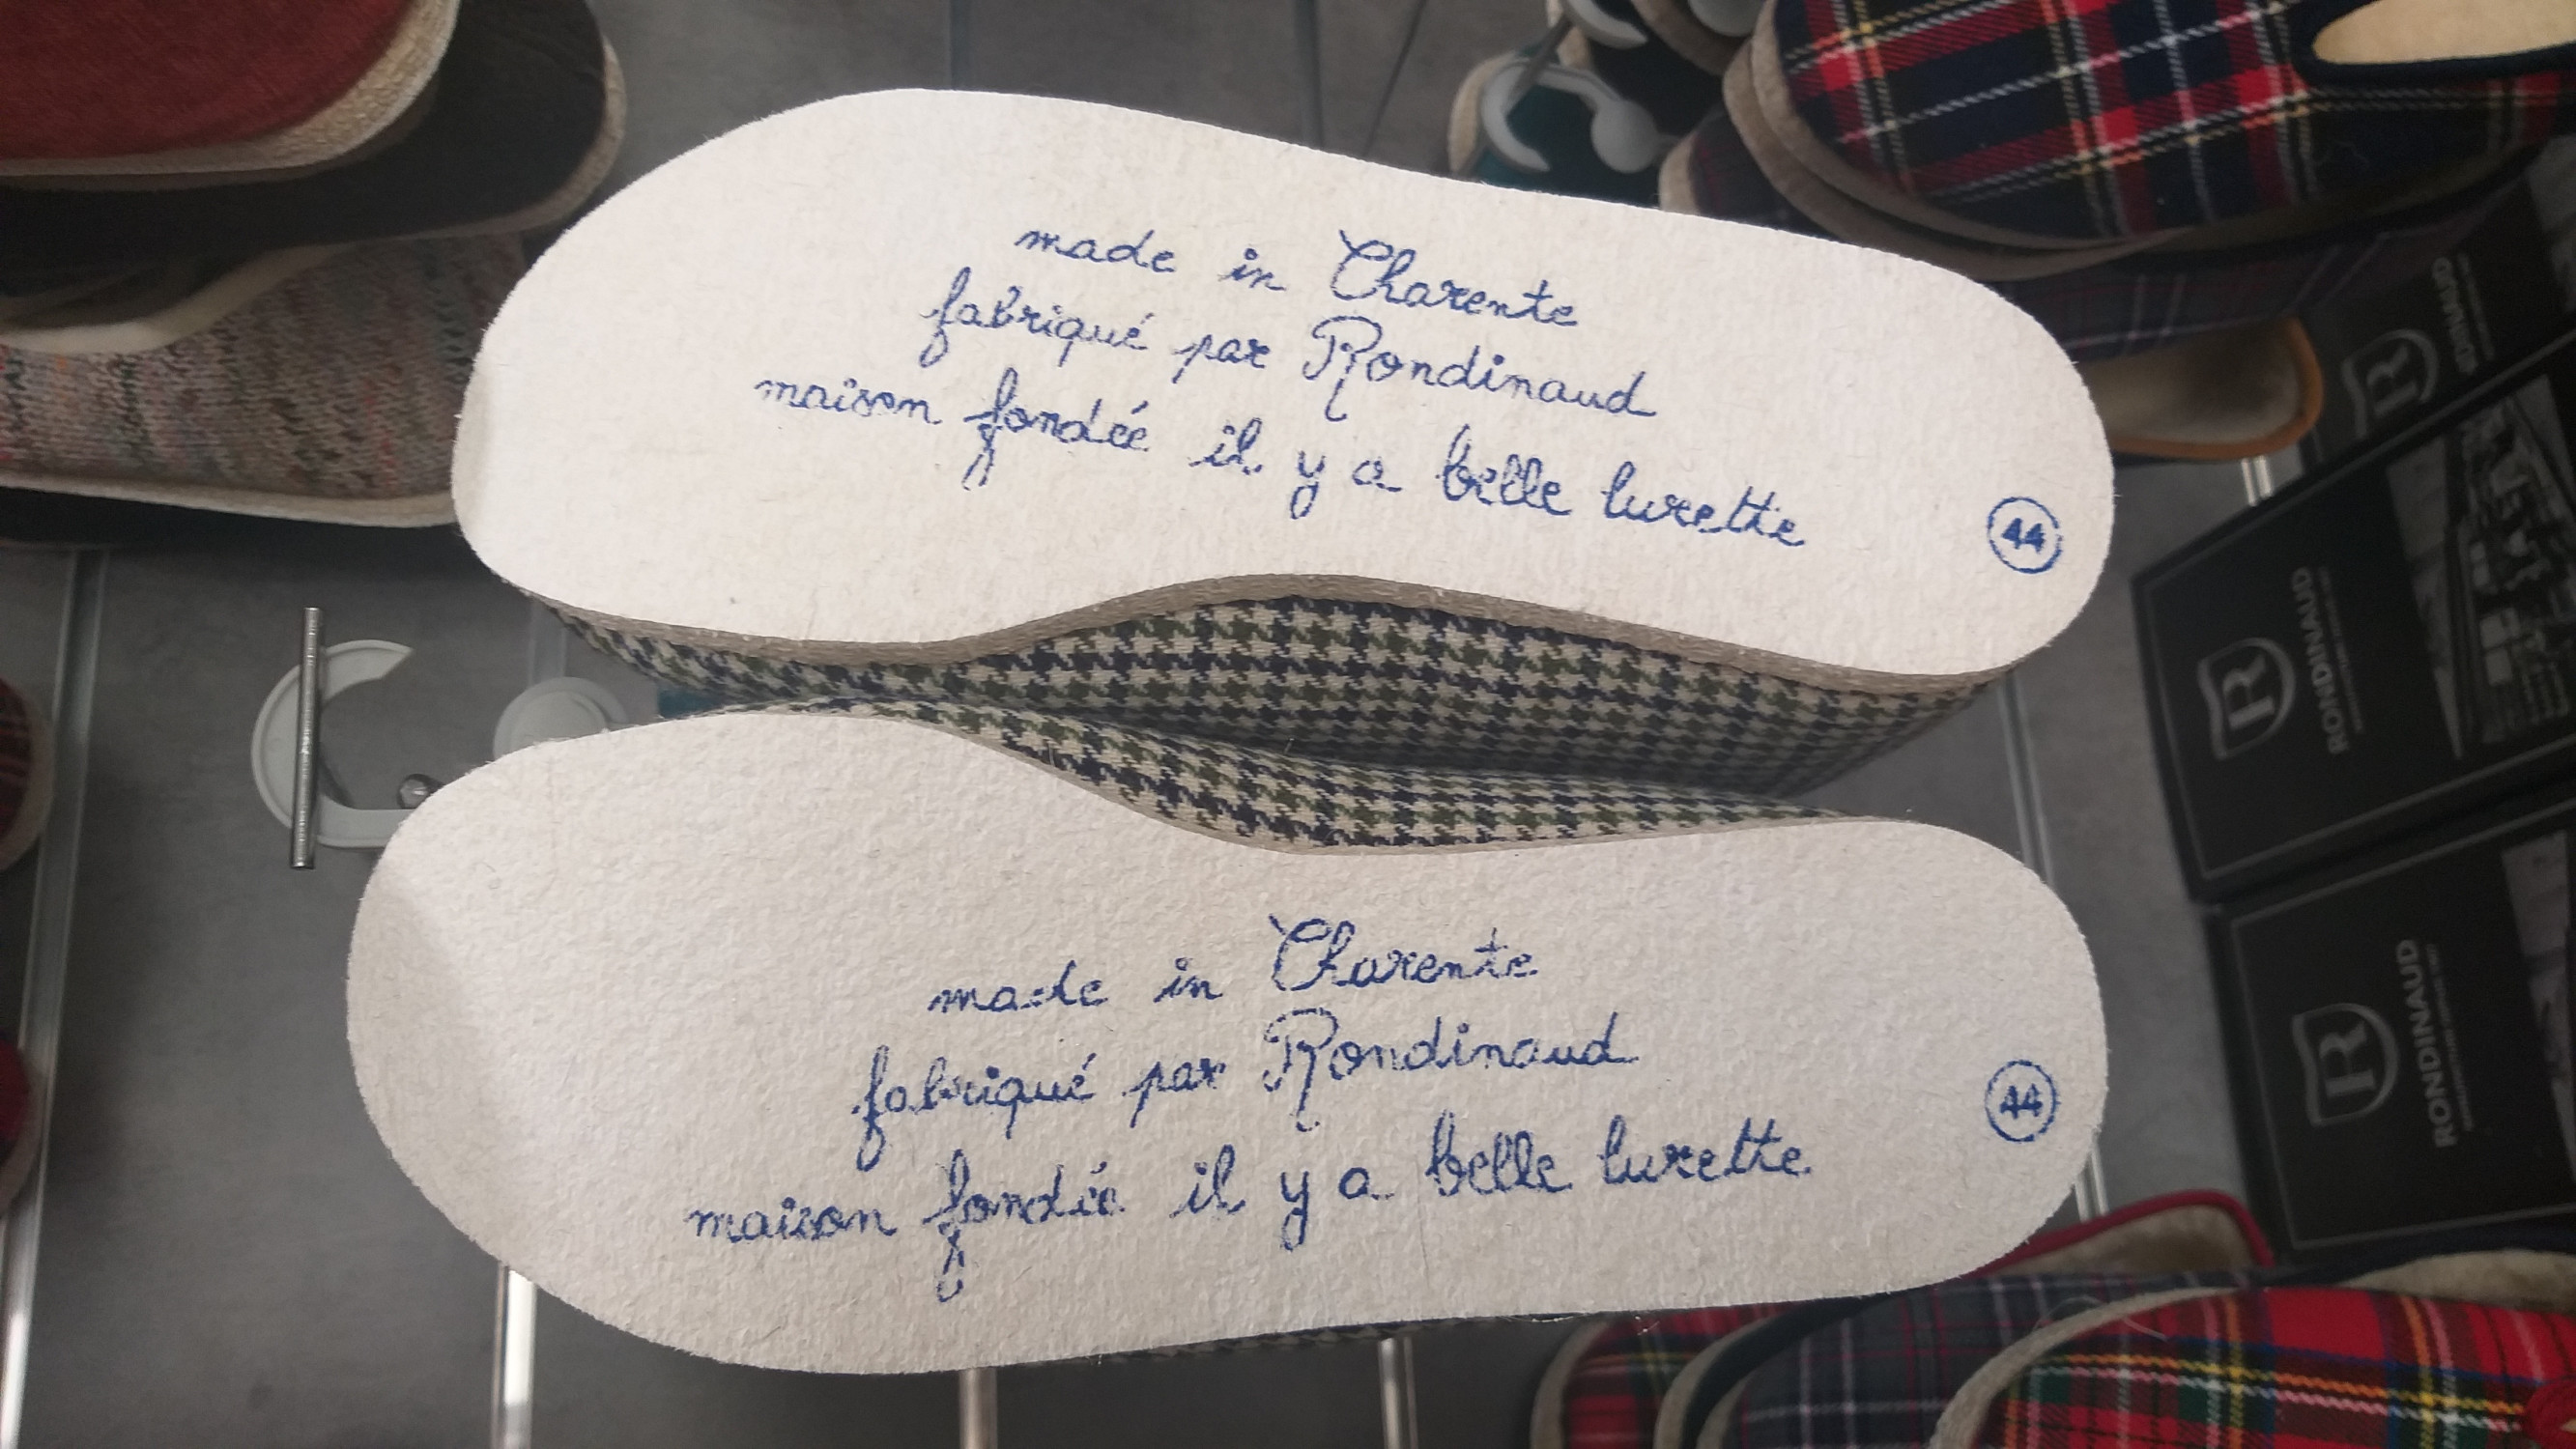 made in Charente
fabriqué par Rondinaud
maison fondée il y a belle lurette
44
made in Charente
fabriqué par Rondinaud
maison fondée il y a belle lurette
44
R
RONDINAUD
R
RONDINAUD
R
RONDINAUD